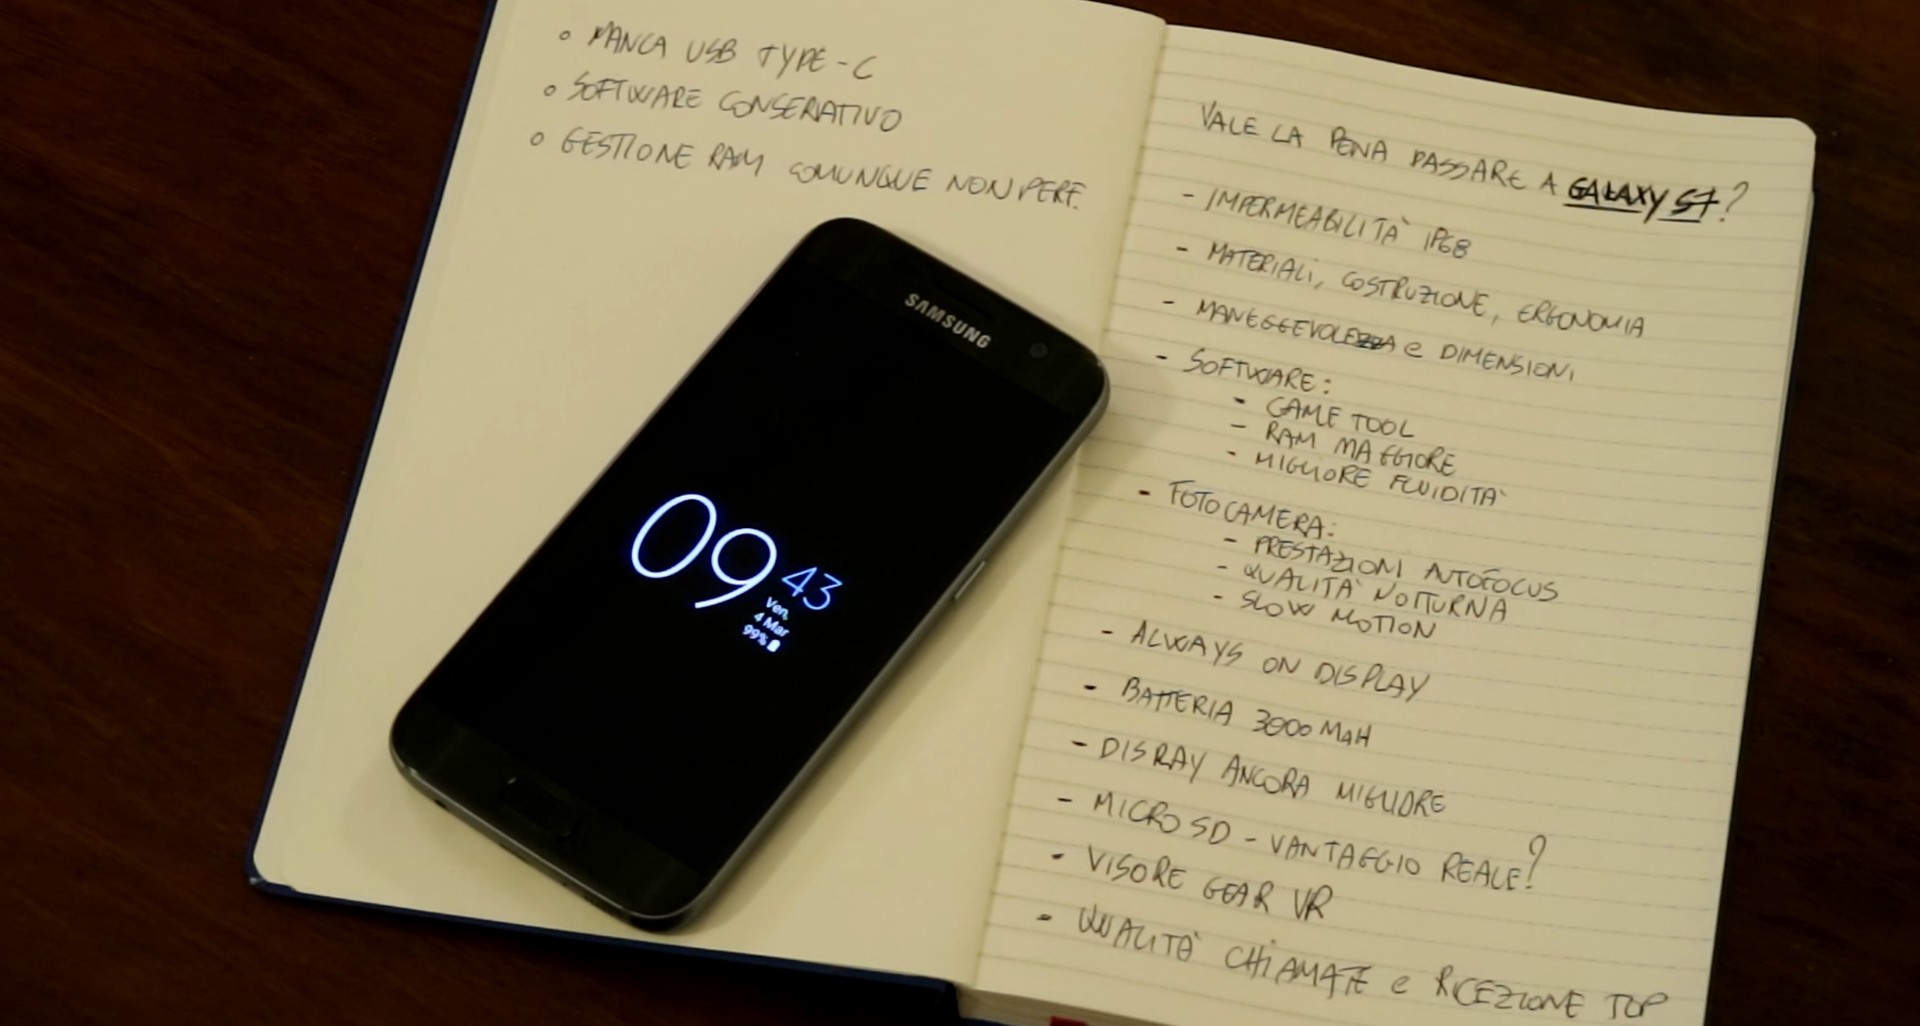 ° MANCA USB TYPE-C
° SOFTWARE CONSERVATIVO
° GESTIONE RAM COMUNQUE NON PERF.
SAMSUNG
09 43
Ven,
4 Mar
99%
VALE LA PENA PASSARE A GALAXY S7?
- IMPERMEABILITÀ IP68
- MATERIALI, COSTRUZIONE, ERGONOMIA
- MANEGGEVOLEZZA e DIMENSIONI
- SOFTWARE:
- GAME TOOL
- RAM MAGGIORE
- MIGLIORE FLUIDITÀ
- FOTOCAMERA:
- PRESTAZIONI AUTOFOCUS
- QUALITÀ NOTTURNA
- SLOW MOTION
- ALWAYS ON DISPLAY
- BATTERIA 3000 MAH
- DISPLAY ANCORA MIGLIORE
- MICRO SD - VANTAGGIO REALE?
- VISORE GEAR VR
- QUALITÀ CHIAMATE e RICEZIONE TOP